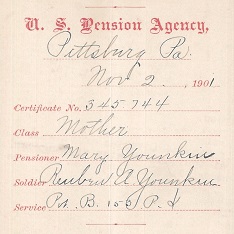 U. S. Pension Agency,
Pittsburg Pa.
Nov 2, 1901
Certificate No. 345744
Class Mother
Pensioner Mary Younkin
Soldier Reuben A Younkin
Service Pvt. B. 155 P. V